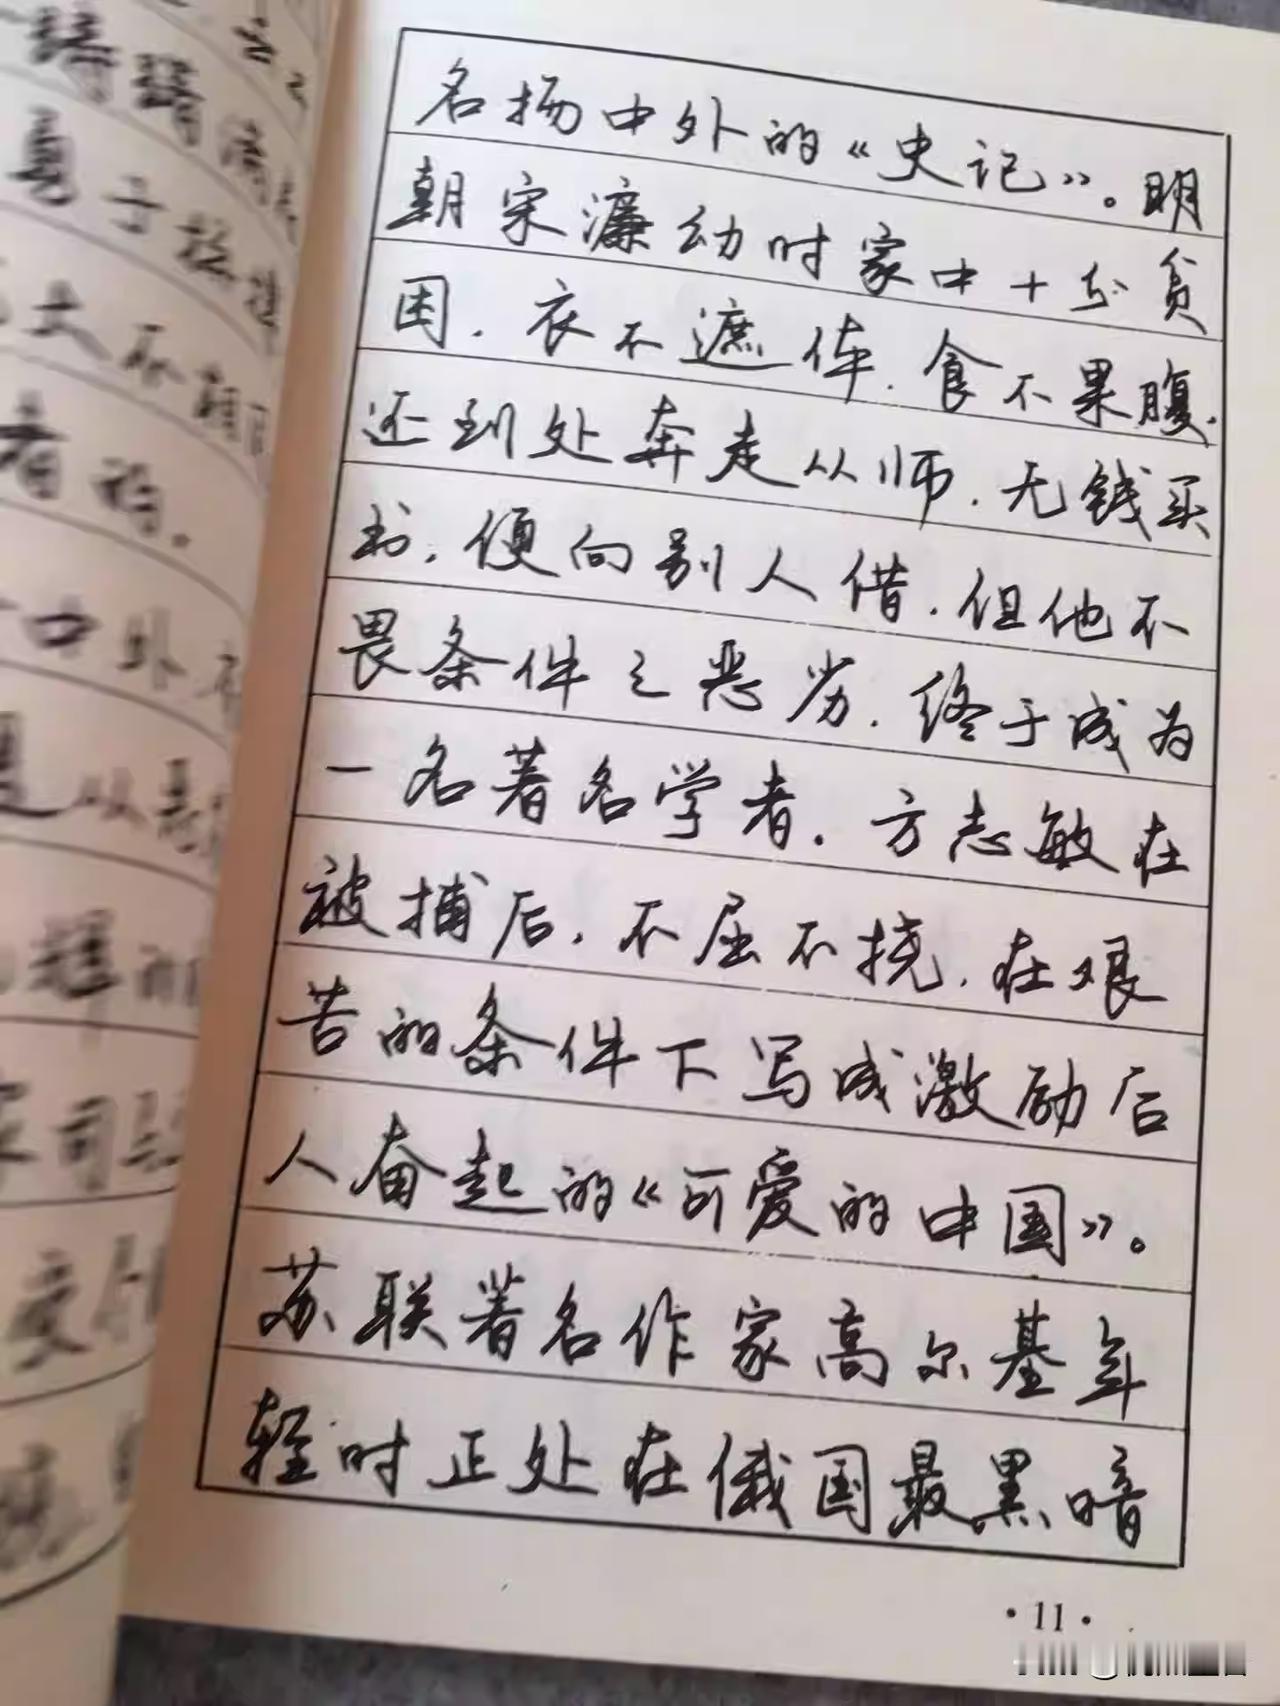 名扬中外的《史记》。明
朝宋濂幼时家中十分贫
困，衣不遮体，食不果腹，
还到处奔走从师，无钱买
书，便向别人借，但他不
畏条件之恶劣，终于成为
一名著名学者。方志敏在
被捕后，不屈不挠，在艰
苦的条件下写成激励后
人奋起的《可爱的中国》。
苏联著名作家高尔基年
轻时正处在俄国最黑暗
·11·